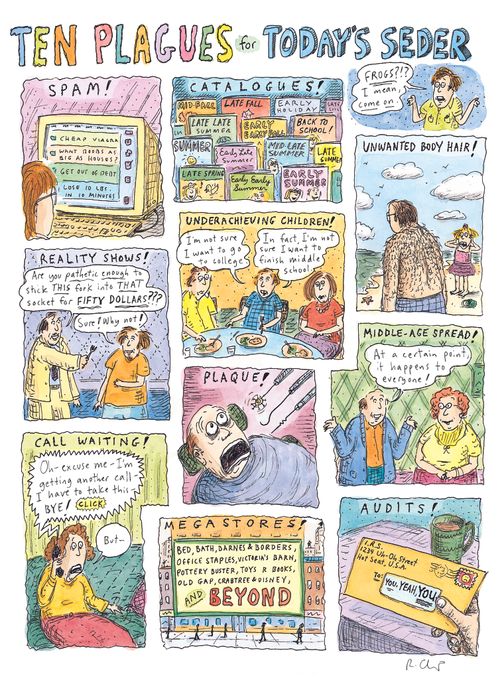 TEN PLAGUES for TODAY'S SEDER
SPAM!
CHEAP VIAGRA
WANT BOOBS AS
BIG AS HOUSES?
GET OUT OF DEBT
LOSE 10 LBS.
IN 10 MINUTES
CATALOGUES!
MID-FALL
LATE FALL
EARLY
HOLIDAY
LATE LATE
SUMMER
EARLY
EARLY FALL
BACK TO
SCHOOL!
SUMMER
Early Late
Summer
MID-LATE
SUMMER
LATE
SUMMER
LATE SPRING
Early Early
Summer
EARLY
SUMMER
FROGS?!?
I mean,
come on.
UNWANTED BODY HAIR!
REALITY SHOWS!
Are you pathetic enough to
stick THIS fork into THAT
socket for FIFTY DOLLARS???
Sure! Why not!
UNDERACHIEVING CHILDREN!
I'm not sure
I want to go
to college.
In fact, I'm not
sure I want to
finish middle
school.
MIDDLE-AGE SPREAD!
At a certain point,
it happens to
everyone!
PLAQUE!
CALL WAITING!
Oh-excuse me-I'm
getting another call-
I have to take this
BYE! CLICK
But-
MEGASTORES!
BED, BATH, BARNES & BORDERS,
OFFICE STAPLES, VICTORIA'S BARN,
POTTERY BUSTER, TOYS R BOOKS,
OLD GAP, CRABTREE & DISNEY,
AND BEYOND
AUDITS!
I.R.S.
1234 Uh-Oh Street
Not Seat, U.S.A.
To: YOU, YEAH, YOU
R. Chast